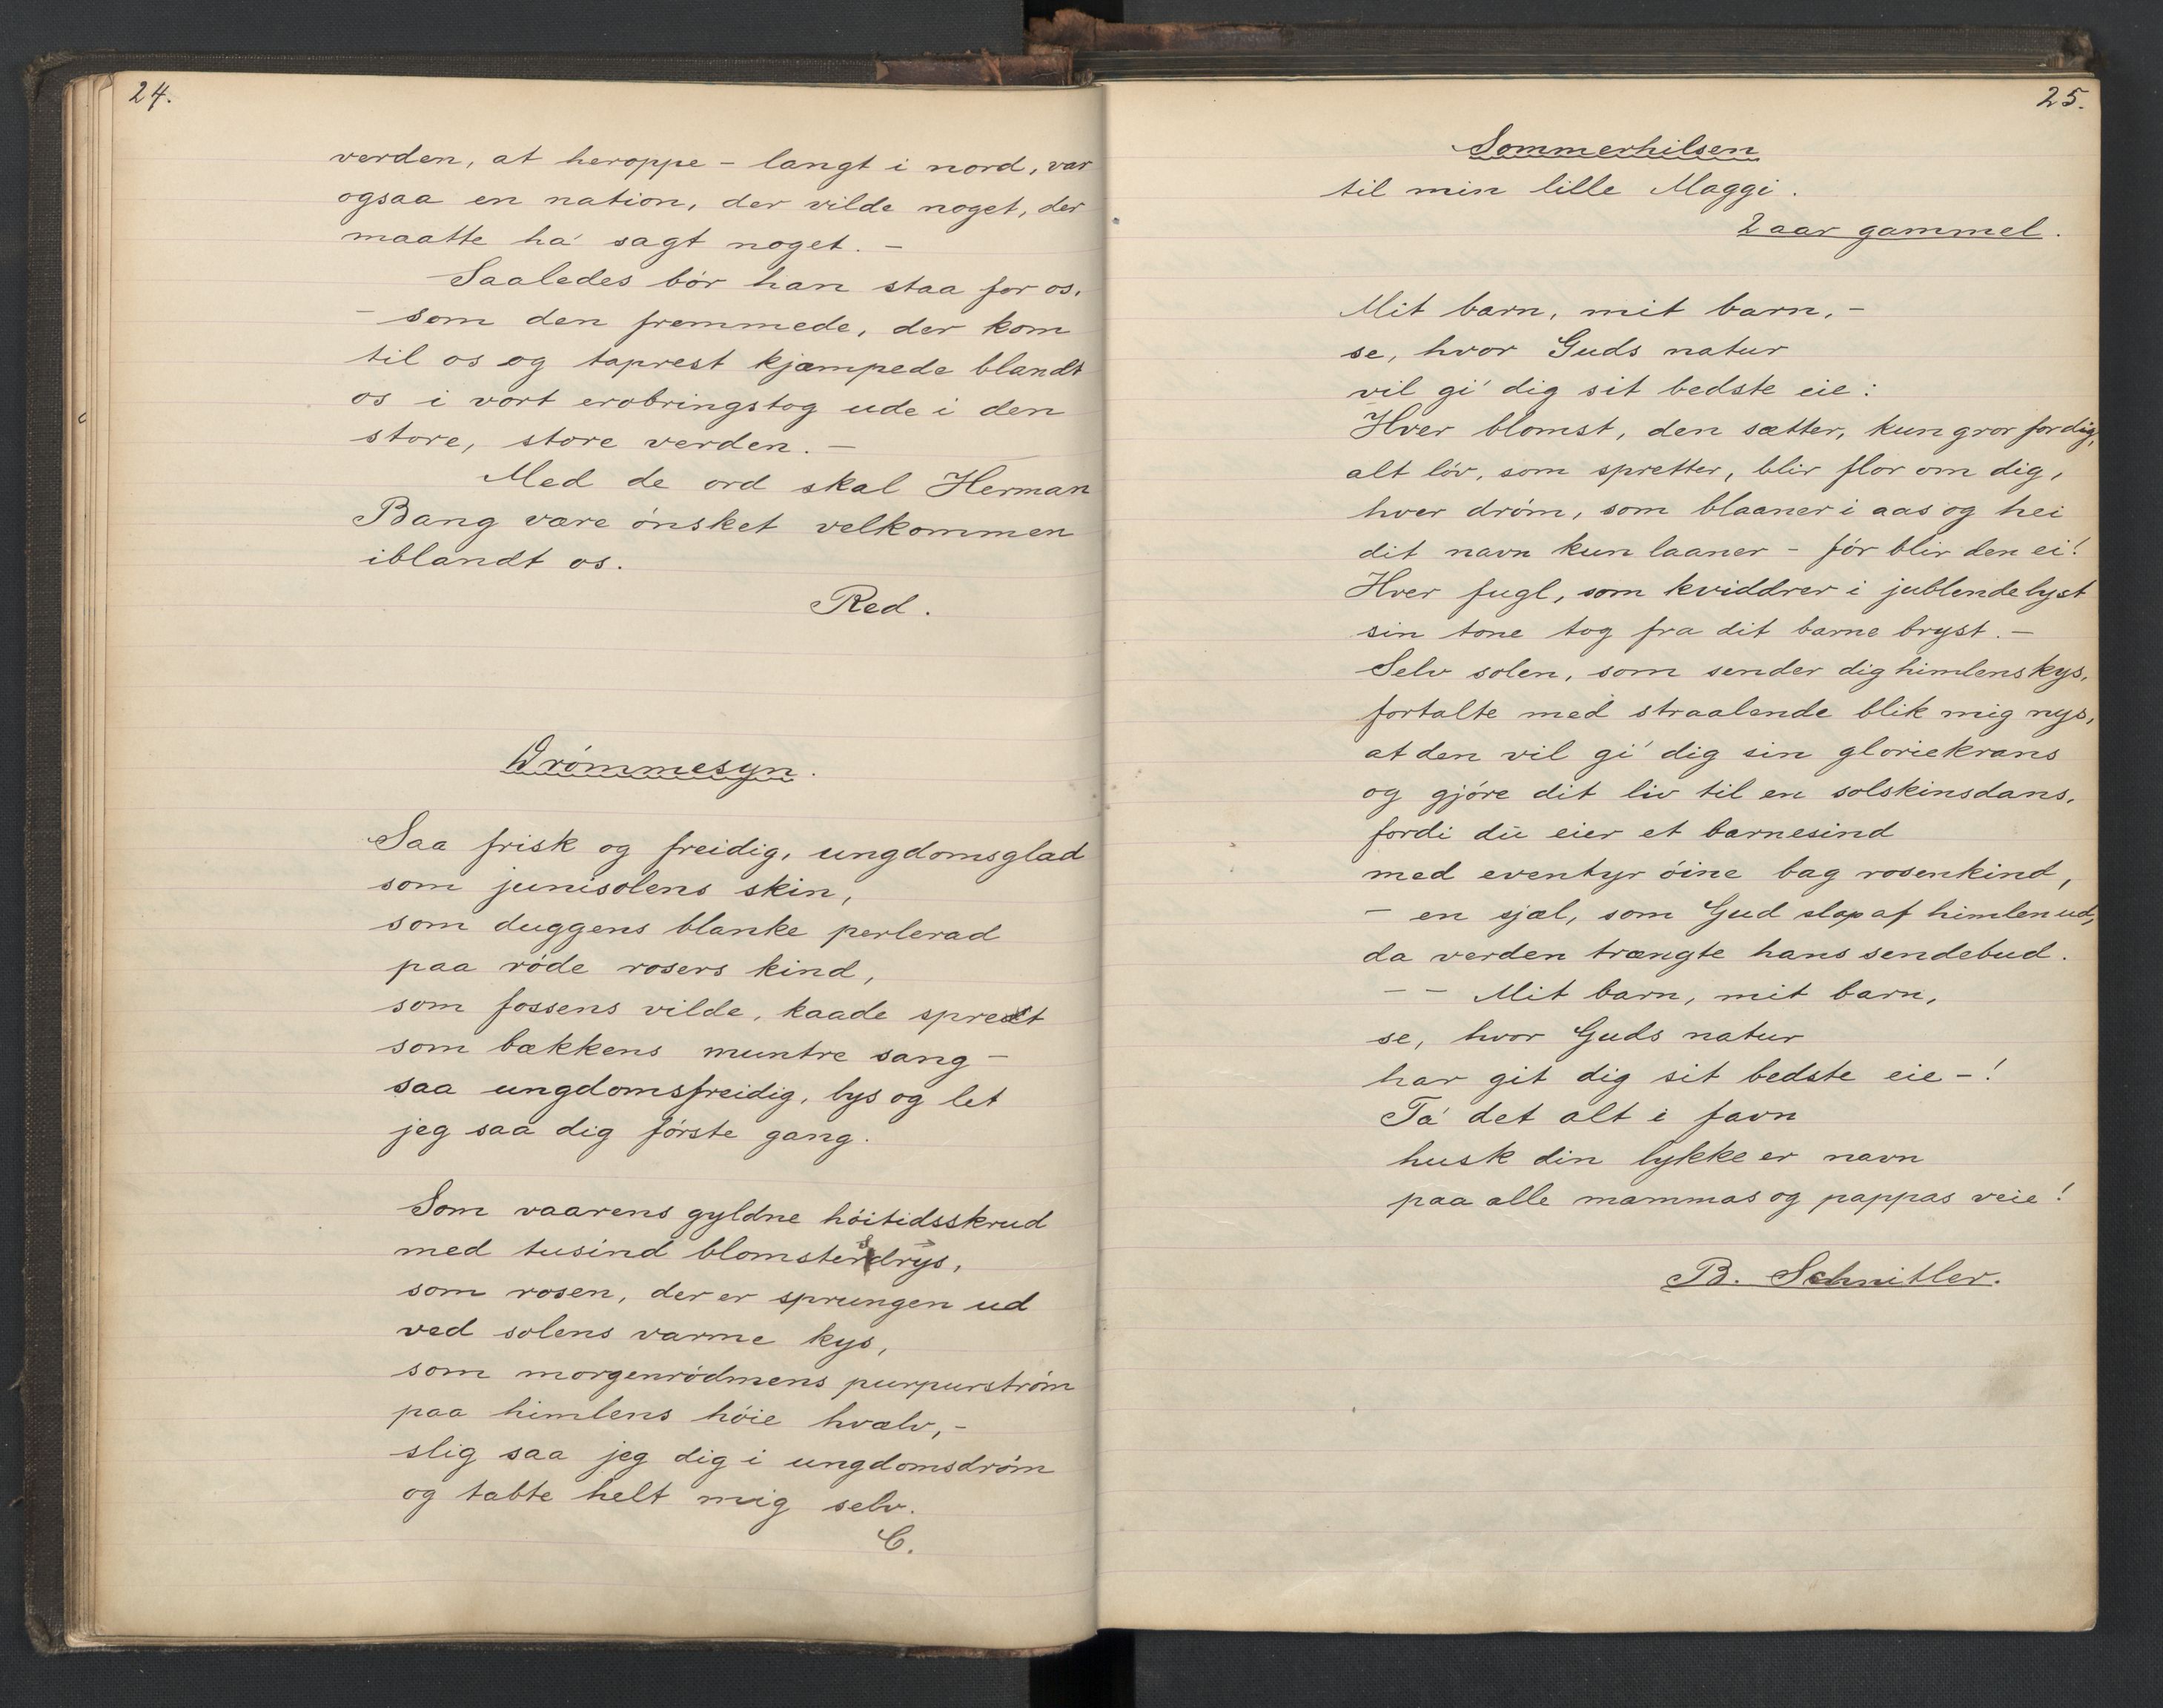 24.
verden, at heroppe – langt i nord, var
ogsaa en nation, der vilde noget, der
maatte ha' sagt noget. –
Saaledes bór han staa for os,
– som den fremmede, der kom
til os og taprest kjæmpede blandt
os i vort erobringstog ude i den
store, store verden. –
Med de ord skal Herman
Bang være ónsket velkommen
iblandt os.
Red.
Drómmesyn.
Saa frisk og freidig, ungdomsglad
som junisolens skin,
som duggens blanke perlerad
paa róde rosers kind,
som fossens vilde, kaade sprett
som bækkens muntre sang –
saa ungdomsfreidig, lys og let
jeg saa dig fórste gang.
Som vaarens gyldne hóitidsskrud
med tusind blomstersdrys,
som rosen, der er sprungen ud
ved solens varme kys,
som morgenródmens purpurstróm
paa himlens hóie hvælv, –
slig saa jeg dig i ungdomsdróm
og tabte helt mig selv.
C.
25.
Sommerhilsen
til min lille Maggi.
2 aar gammel.
Mit barn, mit barn, –
se, hvor Guds natur
vil gi' dig sit bedste eie:
Hver blomst, den sætter, kun gror for dig,
alt lóv, som spretter, blir flor om dig,
hver dróm, som blaaner i aas og hei
dit navn kun laaner – fór blir den ei!
Hver fugl, som kviddrer i jublende lyst
sin tone tog fra dit barne bryst. –
Selv solen, som sender dig himlens kys,
fortalte med straalende blik mig nys,
at den vil gi' dig sin gloriekrans
og gjóre dit liv til en solskinsdans,
fordi du eier et barnesind
med eventyr óine bag rosenkind,
– en sjæl, som Gud slap af himlen ud,
da verden trængte hans sendebud.
– – Mit barn, mit barn,
se, hvor Guds natur
har git dig sit bedste eie – !
Ta' det alt i favn
husk din lykke er navn
paa alle mammas og pappas veie!
B. Schnitler.